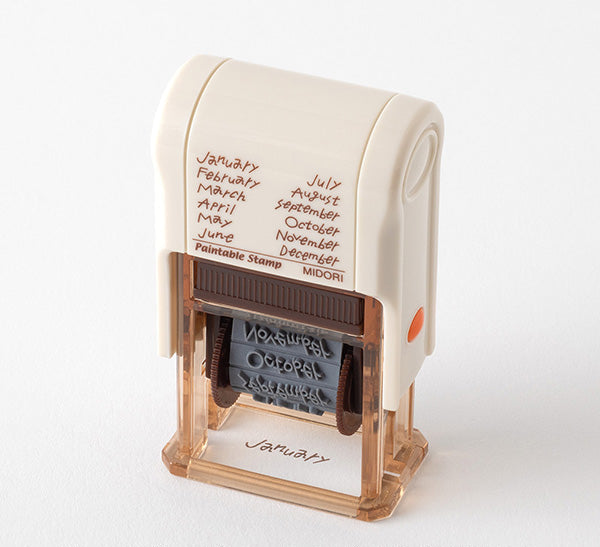 January
February
March
April
May
June
July
August
September
October
November
December
Paintable Stamp
MIDORI
November
October
September
January